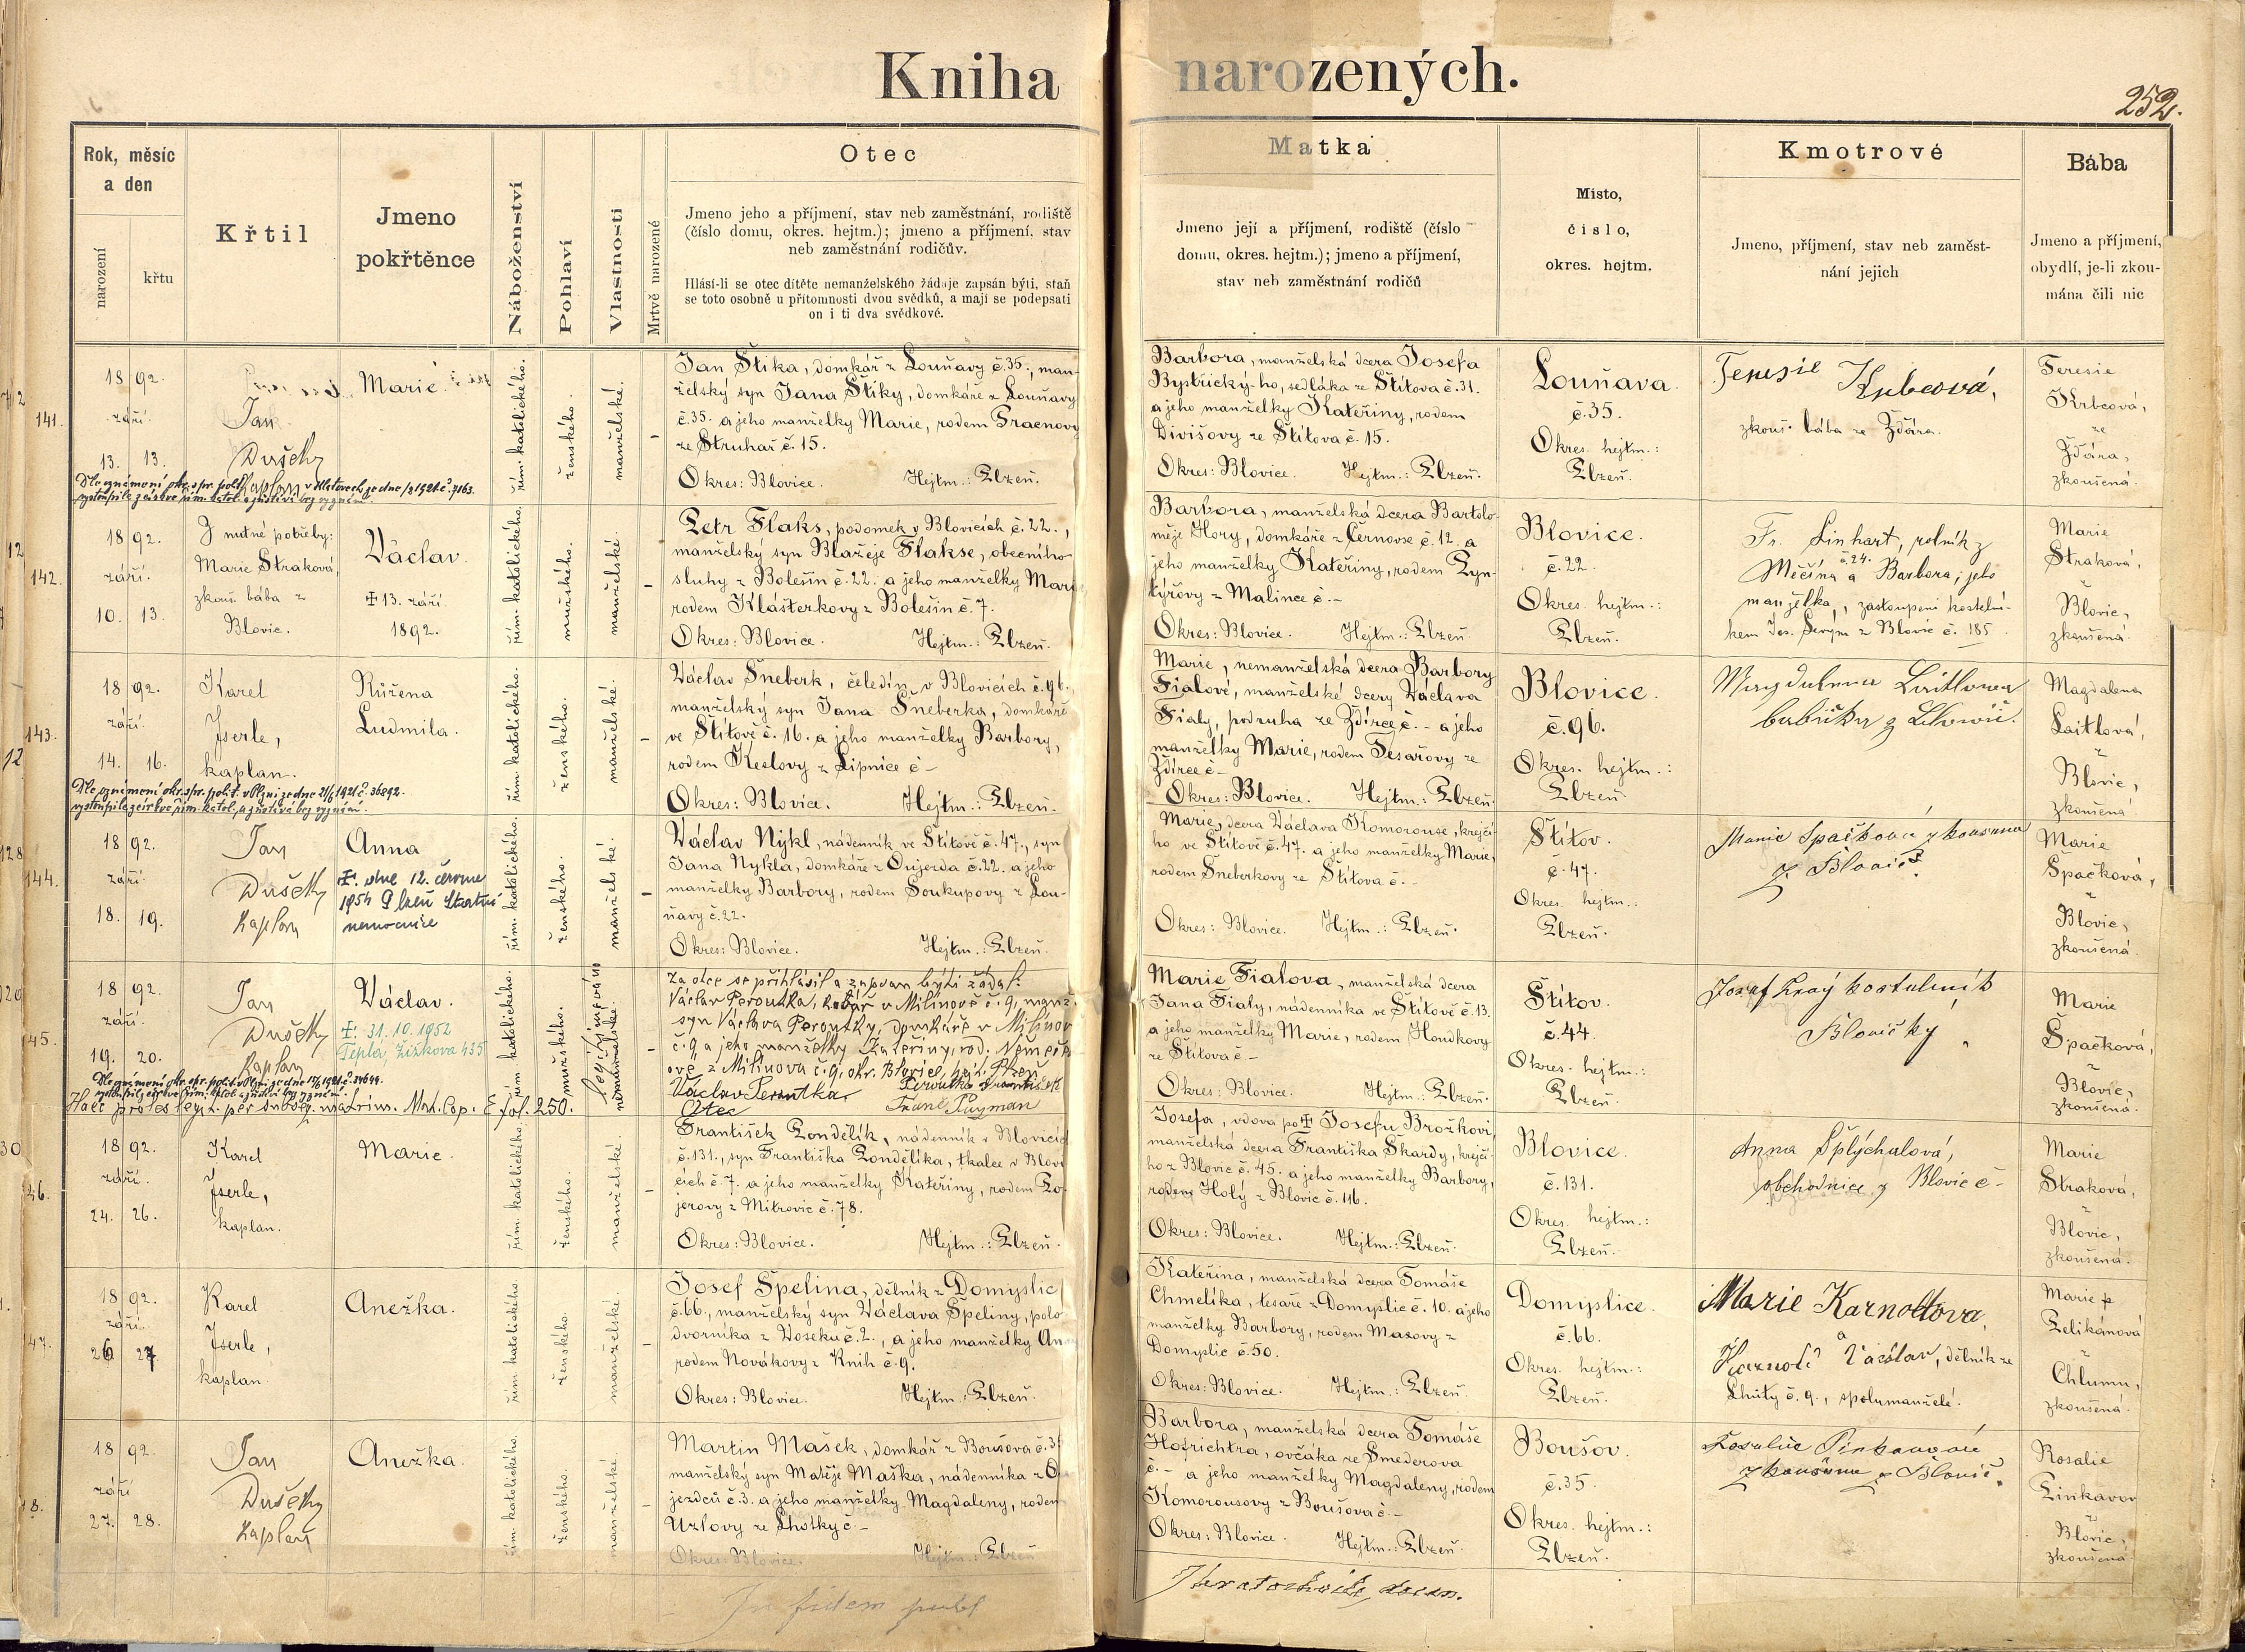 Kniha narozených.
252.
Rok, měsíc
a den
narození
křtu
Křtil
Jmeno
pokřtěnce
Náboženství
Pohlaví
Vlastnosti
Mrtvě narozené
Otec
Jmeno jeho a příjmení, stav neb zaměstnání, rodiště
(číslo domu, okres. hejtm.); jmeno a příjmení, stav
neb zaměstnání rodičův.
Hlásí-li se otec dítěte nemanželského žádaje zapsán býti, staň
se toto osobně u přítomnosti dvou svědků, a mají se podepsati
on i ti dva svědkové.
Matka
Jmeno její a příjmení, rodiště (číslo
domu, okres. hejtm.); jmeno a příjmení,
stav neb zaměstnání rodičů
Místo,
číslo,
okres. hejtm.
Kmotrové
Jmeno, příjmení, stav neb zaměst-
nání jejich
Bába
Jmeno a příjmení,
obydlí, je-li zkou-
mána čili nic
141.
1892.
září
13. 13.
Jan
Dušek
kaplan
Marie
řím. katolického.
ženského.
manželské.
Jan Štika, domkář z Louňavy č. 35., man-
želský syn Jana Štiky, domkáře z Louňavy
č. 35. a jeho manželky Marie, rodem
ze Struhař č. 15.
Okres: Blovice. Hejtm.: Plzeň.
Barbora, manželská dcera Josefa
Bystřický-ho, sedláka ze Štítova č. 31.
a jeho manželky Kateřiny, rodem
Divišovy ze Štítova č. 15.
Okres: Blovice. Hejtm.: Plzeň.
Louňava.
č. 35.
Okres. hejtm.:
Plzeň.
Terezie Krbcová,
zkouš. bába ze Ždára.
Teresie
Krbcová,
ze
Ždára,
zkoušená.
142.
1892.
září.
10. 13.
Z nutné potřeby:
Marie Straková,
zkouš. bába z
Blovic.
Václav.
✝ 13. září
1892.
řím. katolického.
mužského.
manželské
Petr Flaks, podomek v Blovicích č. 22.,
manželský syn Blažeje Flakse, obecního
sluhy z Bolešin č. 22. a jeho manželky Mari
rodem Klášterkovy z Bolešin č. 7.
Okres: Blovice. Hejtm.: Plzeň.
Barbora, manželská dcera Bartolo-
měje Hory, domkáře z Černovse č. 12. a
jeho manželky Kateřiny, rodem Pyn-
týřovy z Malince č. -
Okres: Blovice. Hejtm.: Plzeň
Blovice.
č. 22.
Okres. hejtm.:
Plzeň.
Fr. Linhart, rolník z
Měčína č. 24. a Barbora, jeho
manželka, zastoupeni kostelní-
kem Jos. Šerým z Blovic č. 185
Marie
Straková,
z
Blovic,
zkoušená.
143.
1892.
září
14. 16.
Karel
Iserle,
kaplan.
Růžena
Ludmila.
řím. katolického.
ženského.
manželské.
Václav Šneberk, čeledín v Blovicích č. 96.,
manželský syn Jana Šneberka, domkáře
ve Štítově č. 16. a jeho manželky Barbory,
rodem Keslovy z Lipnice č -
Okres: Blovice. Hejtm.: Plzeň.
Marie, nemanželská dcera Barbory
Fialové, manželské dcery Václava
Fialy, podruha ze Ždírce č. - a jeho
manželky Marie, rodem Tesařovy ze
Ždírce č -
Okres: Blovice. Hejtm.: Plzeň.
Blovice.
č. 96.
Okres. hejtm.:
Plzeň.
Magdalena Laitlova
babička z Blovic.
Magdalena
Laitlová,
z
Blovic,
zkoušená
144.
1892.
září
18. 19.
Jan
Dušek
kaplan
Anna
✝. dne 12. června
1954 Plzeň Státní
nemocnice
řím. katolického.
ženského.
manželské.
Václav Nykl, nádenník ve Štítově č. 47., syn
Jana Nykla, domkáře z Oujezda č. 22. a jeho
manželky Barbory, rodem Soukupovy z Lou-
ňavy č. 22.
Okres: Blovice. Hejtm.: Plzeň.
Marie, dcera Václava Komorouse, krejčí-
ho ve Štítově č. 47. a jeho manželky Marie,
rodem Šneberkovy ze Štítova č. -
Okres: Blovice. Hejtm.: Plzeň.
Štítov.
č. 47.
Okres. hejtm.:
Plzeň.
Marie Spačková zkoušená
z Blovic.
Marie
Špačková,
z
Blovic,
zkoušená.
45.
1892.
září.
19. 20.
Jan
Dušek
kaplan
Václav.
✝. 31. 10. 1952
Teplá, Žižkova 435
řím. katolického.
mužského.
legitimováno
nemanželské.
Za otce se přihlásil a zapsán býti žádal:
Václav Peroutka, kolář v Milínově č. 9, manž.
syn Václava Peroutky, domkáře v Milínov
č. 9 a jeho manželky Kateřiny, rod. Němeč-
ové z Milínova č. 9, okr. Blovice, hejt. Plzeň
Václav Peroutka Peroutka František
Otec
Haec proles legit. per subseq. matrim. Mat. Cop. E fol. 250.
Marie Fialova, manželská dcera
Jana Fialy, nádenníka ve Štítově č. 13.
a jeho manželky Marie, rodem Houdkovy
ze Štítova č -
Okres: Blovice. Hejtm.: Plzeň.
Štítov.
č. 44.
Okres. hejtm.:
Plzeň.
Josef kostelník
Blovický
Marie
Špačková,
z
Blovic,
zkoušená.
46.
1892.
září.
24. 26.
Karel
Iserle,
kaplan.
Marie.
řím. katolického.
ženského.
manželské.
František Pondělík, nádenník v Blovicích
č. 131., syn Františka Pondělíka, tkalce v Blovi
cích č. 7. a jeho manželky Kateřiny, rodem Po-
jerovy z Mitrovic č. 78.
Okres: Blovice. Hejtm.: Plzeň.
Josefa, vdova po ✝ Josefu Brožkovi,
manželská dcera Františka Škardy, krejčí-
ho z Blovic č. 45. a jeho manželky Barbory,
rodem Holý z Blovic č. 116.
Okres: Blovice. Hejtm.: Plzeň.
Blovice.
č. 131.
Okres. hejtm.:
Plzeň.
Anna Šplýchalová,
obchodnice z Blovic č -
Marie
Straková,
z
Blovic,
zkoušená.
47.
1892.
září.
26 27
Karel
Iserle,
kaplan.
Anežka.
řím. katolického
ženského.
manželské.
Josef Špelina, dělník z Domyslic
č. 66., manželský syn Václava Špeliny, polo-
dvorníka z Voseku č. 2., a jeho manželky An
rodem Novákovy z Knih č. 9.
Okres: Blovice. Hejtm.: Plzeň.
Kateřina, manželská dcera Tomáše
Chmelíka, tesaře z Domyslic č. 10. a jeho
manželky Barbory, rodem Maxovy z
Domyslic č. 50.
Okres: Blovice. Hejtm.: Plzeň.
Domyslice.
č. 66.
Okres. hejtm.:
Plzeň.
Marie Karnoltova,
a
Karnolt Václav, dělník ze
Lhuty č. 9., spolumanželé.
Marie
Pelikánová
z
Chlumu,
zkoušená.
18.
1892.
září
27. 28.
Jan
Dušek
kaplan
Anežka.
řím. katolického.
ženského.
manželské.
Martin Mašek, domkář z Boušova č. 3
manželský syn Matěje Maška, nádenníka z
jezdců č. 3. a jeho manželky Magdaleny, rodem
Uzlovy ze Lhotky č -
Okres: Blovice. Hejtm.: Plzeň
Barbora, manželská dcera Tomáše
Hofrichtra, ovčáka ze Smederova
č. - a jeho manželky Magdaleny, rodem
Komorousovy z Boušova č. -
Okres: Blovice. Hejtm.: Plzeň.
Boušov.
č. 35.
Okres. hejtm.:
Plzeň.
Rosalie Pinkavová
zkoušená z Blovic.
Rosalie
Pinkavov
z
Blovic,
zkoušená
In fidem publ